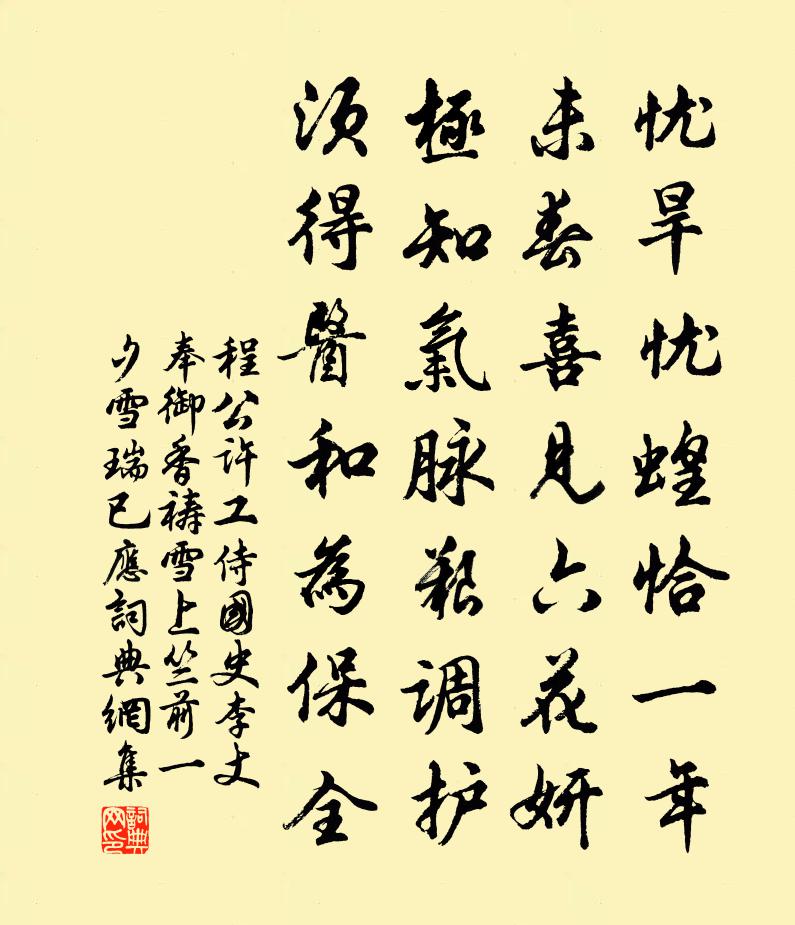 忧旱忧蝗恰一年
未春喜见六花妍
極知氣脉艱调护
须得醫和為保全
程公许工侍國史李丈
奉御香祷雪上竺前一
夕雪瑞已應詞典網集
詞典网印